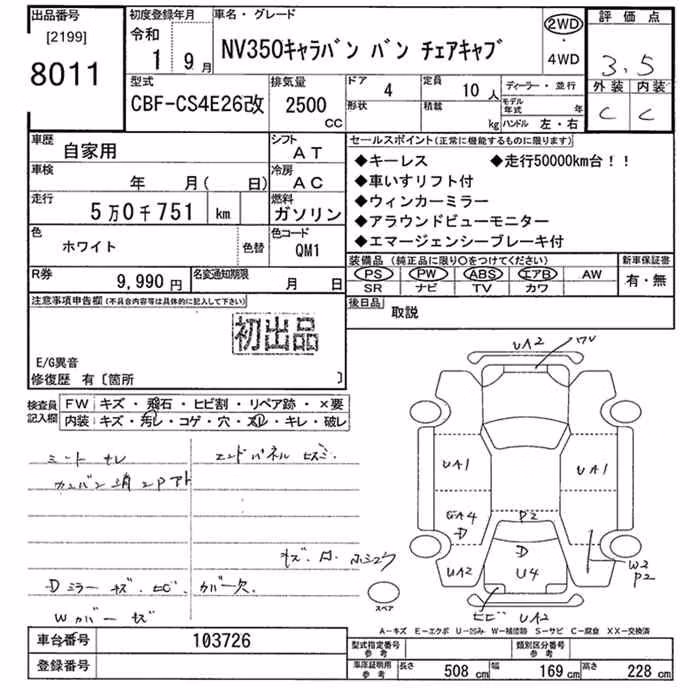 出品番号
[2199]
8011
初度登録年月
令和
1 9月
車名・グレード
NV350キャラバン バン チェアキャブ
2WD
・
4WD
評価点
3.5
外装 内装
C C
型式
CBF-CS4E26改
排気量
2500
CC
ドア
4
定員
10人
ディーラー・並行
形状
積載
kg
モデル年式
年
ハンドル 左・右
車歴
自家用
シフト
AT
車検
年 月( 日)
冷房
AC
走行
5万0千751 km
燃料
ガソリン
色
ホワイト
色替
色コード
QM1
R券
9,990円
名変通知期限
月 日
セールスポイント(正常に機能するものに限ります)
◆キーレス ◆走行50000km台!!
◆車いすリフト付
◆ウィンカーミラー
◆アラウンドビューモニター
◆エマージェンシーブレーキ付
装備品 (純正品に限り○をつけてください)
新車保証書
PS PW ABS エアB AW
有・無
SR ナビ TV カワ
後日品
取説
注意事項申告欄(不具合内容等は具体的に記入して下さい)
初出品
E/G異音
修復歴 有〔箇所 〕
検査員記入欄
FW キズ・飛石・ヒビ割・リペア跡・×要
内装 キズ・汚レ・コゲ・穴・スレ・キレ・破レ
シート スレ
カンバン消シアト
エンドパネル ヒズミ
キズ・凹
Dミラー キズ・ヒビ
カバー欠
Wカバー キズ
UA2
UA1
UA1
GA4
D
P2
D
U4
UA2
W2
P2
ヒビ UA2
スペア
A-キズ E-エクボ U-凹み W-補修跡 S-サビ C-腐食 XX-交換済
車台番号
103726
登録番号
型式指定番号
参考
類別区分番号
参考
車庫証明用
参考
長さ 508 cm 幅 169 cm 高さ 228 cm